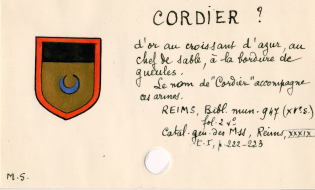 CORDIER ?
d'or au croissant d'azur, au
chef de sable, à la bordure de
gueules.
Le nom de "Cordier" accompagne
ces armes.
REIMS, Bibl. mun. 947 (XVe s.)
fol. 2 vo
Catal. gén. des Mss, Reims, XXXIX
t. I, p. 222-223
M.S.